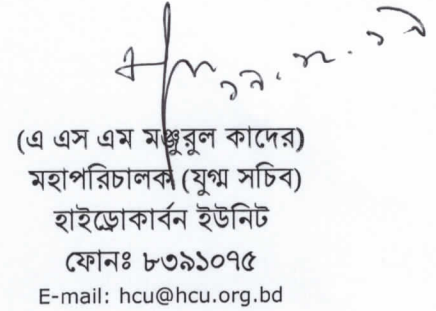 (এ এস এম মঞ্জুরুল কাদের)
মহাপরিচালক (যুগ্ম সচিব)
হাইড্রোকার্বন ইউনিট
ফোনঃ ৮৩৯১০৭৫
E-mail: hcu@hcu.org.bd